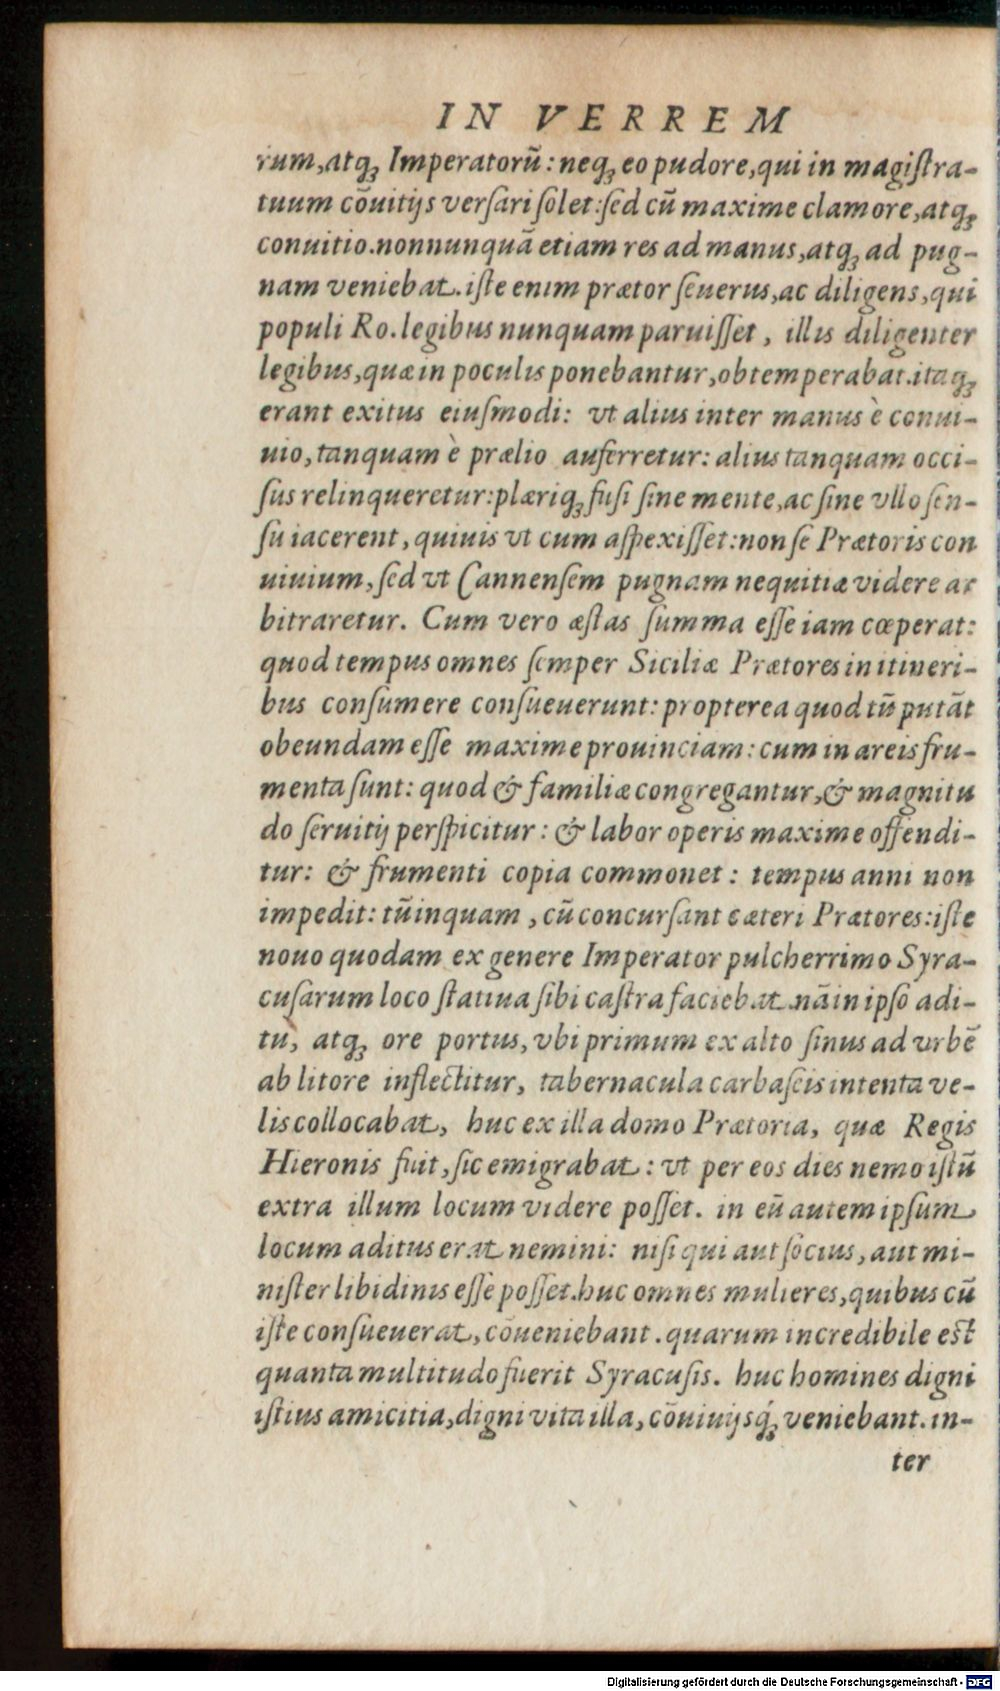 IN VERREM
rum,atq́ꝫ Imperatorũ: neq́ꝫ eo pudore,qui in magiſtra-
tuum cõuitijs verſari ſolet:ſed cũ maxime clamore,atq́ꝫ
conuitio.nonnunquã etiam res ad manus,atq́ꝫ ad pug-
nam veniebat.iſte enim prætor ſeuerus,ac diligens,qui
populi Ro.legibus nunquam paruiſſet, illis diligenter
legibus,quæ in poculis ponebantur,obtemperabat.itaq́ꝫ
erant exitus eiuſmodi: vt alius inter manus è conui-
uio,tanquam è prælio auferretur: alius tanquam occi-
ſus relinqueretur:plæriq́ꝫ fuſi ſine mente,ac ſine vllo ſen-
ſu iacerent, quiuis vt cum aſpexiſſet:non ſe Prætoris con
uiuium, ſed vt Cannenſem pugnam nequitiæ videre ar
bitraretur. Cum vero æſtas ſumma eſſe iam cœperat:
quod tempus omnes ſemper Siciliæ Prætores in itineri-
bus conſumere conſueuerunt: propterea quod tũ putãt
obeundam eſſe maxime prouinciam: cum in areis fru-
menta ſunt: quod & familiæ congregantur,& magnitu
do ſeruitij perſpicitur: & labor operis maxime offendi-
tur: & frumenti copia commonet: tempus anni non
impedit: tũ inquam, cũ concurſant cæteri Prætores:iſte
nouo quodam ex genere Imperator pulcherrimo Syra-
cuſarum loco ſtatiua ſibi caſtra faciebat.nã in ipſo adi-
tu, atq́ꝫ ore portus, vbi primum ex alto ſinus ad vrbẽ
ab litore inflectitur, tabernacula carbaſeis intenta ve-
lis collocabat, huc ex illa domo Prætoria, quæ Regis
Hieronis fuit, ſic emigrabat: vt per eos dies nemo iſtũ
extra illum locum videre poſſet. in eũ autem ipſum
locum aditus erat nemini: niſi qui aut ſocius, aut mi-
niſter libidinis eſſe poſſet.huc omnes mulieres,quibus cũ
iſte conſueuerat, cõueniebant.quarum incredibile eſt
quanta multitudo fuerit Syracuſis. huc homines digni
iſtius amicitia,digni vita illa, cõuiuijsq́ꝫ veniebant.in-
ter
Digitalisierung gefördert durch die Deutsche Forschungsgemeinschaft - DFG